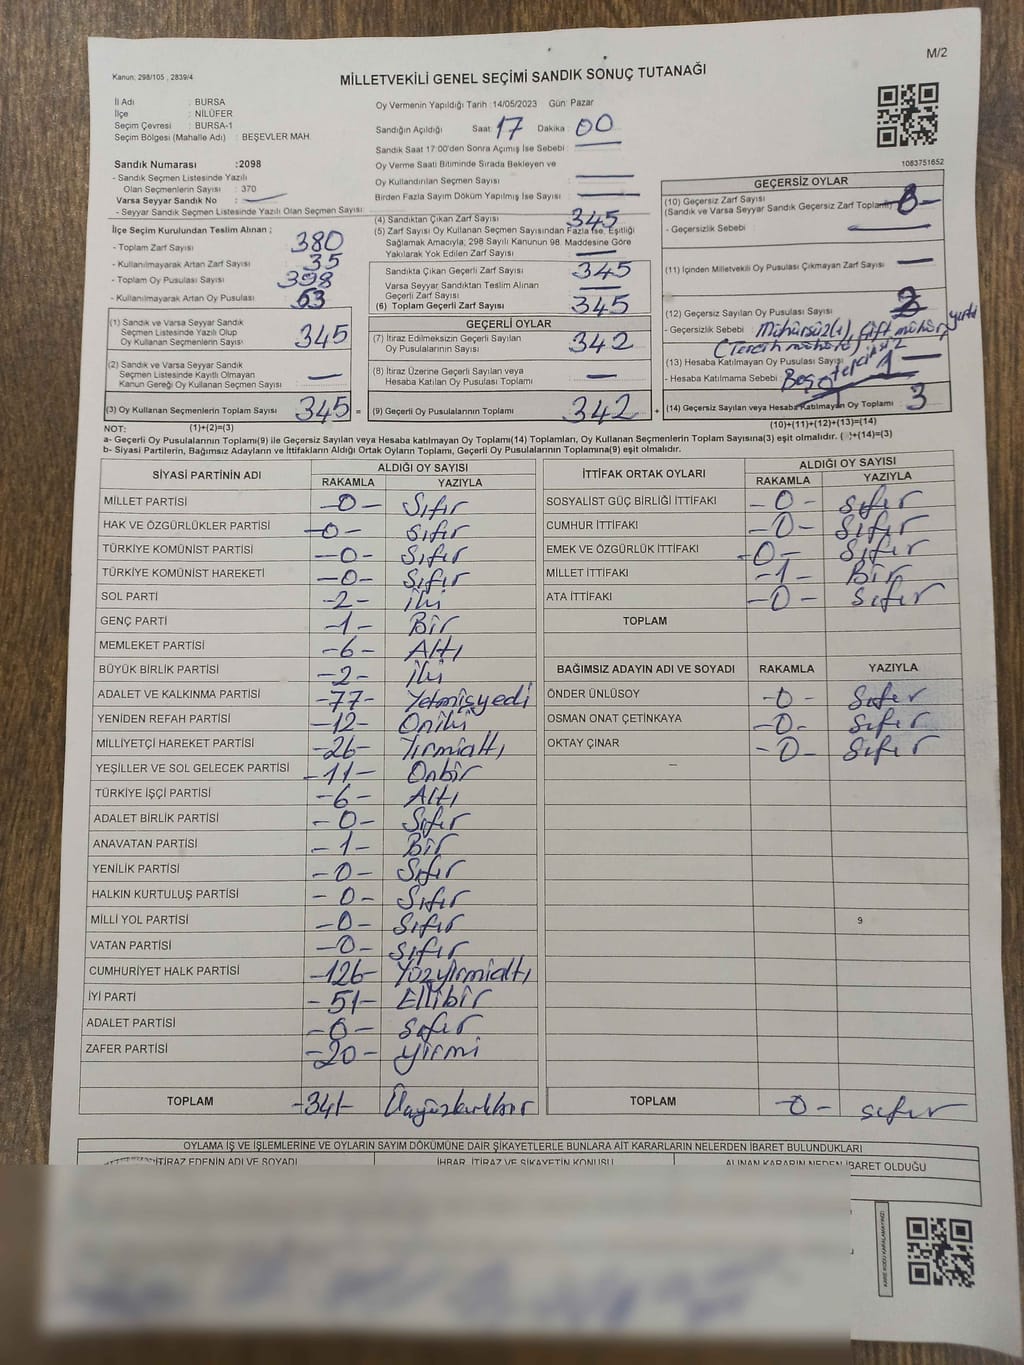 Kanun; 298/105 , 2839/4
M/2
MİLLETVEKİLİ GENEL SEÇİMİ SANDIK SONUÇ TUTANAĞI
İl Adı : BURSA
İlçe : NİLÜFER
Seçim Çevresi : BURSA-1
Seçim Bölgesi (Mahalle Adı) : BEŞEVLER MAH.
Oy Vermenin Yapıldığı Tarih :14/05/2023 Gün Pazar
Sandığın Açıldığı Saat: 17 Dakika : 00
Sandık Saat 17:00'den Sonra Açımış İse Sebebi :
Oy Verme Saati Bitiminde Sırada Bekleyen ve
Oy Kullandırılan Seçmen Sayısı :
Birden Fazla Sayım Döküm Yapılmış İse Sayısı :
1083751652
Sandık Numarası :2098
- Sandık Seçmen Listesinde Yazılı
Olan Seçmenlerin Sayısı : 370
Varsa Seyyar Sandık No :
- Seyyar Sandık Seçmen Listesinde Yazılı Olan Seçmen Sayısı:
İlçe Seçim Kurulundan Teslim Alınan ;
- Toplam Zarf Sayısı : 380
- Kullanılmayarak Artan Zarf Sayısı : 35
- Toplam Oy Pusulası : 398
- Kullanılmayarak Artan Oy Pusulası : 53
(1) Sandık ve Varsa Seyyar Sandık
Seçmen Listesinde Yazılı Olup
Oy Kullanan Seçmenlerin Sayısı : 345
(2) Sandık ve Varsa Seyyar Sandık
Seçmen Listesinde Kayıtlı Olmayan
Kanun Gereği Oy Kullanan Seçmen Sayısı : —
(3) Oy Kullanan Seçmenlerin Toplam Sayısı : 345 =
(4) Sandıktan Çıkan Zarf Sayısı : 345
(5) Zarf Sayısı Oy Kullanan Seçmen Sayısından Fazla ise, Eşitliği
Sağlamak Amacıyla; 298 Sayılı Kanunun 98. Maddesine Göre
Yakılarak Yok Edilen Zarf Sayısı : —
Sandıkta Çıkan Geçerli Zarf Sayısı : 345
Varsa Seyyar Sandıktan Teslim Alınan
Geçerli Zarf Sayısı : —
(6) Toplam Geçerli Zarf Sayısı : 345
GEÇERLİ OYLAR
(7) İtiraz Edilmeksizin Geçerli Sayılan
Oy Pusulalarının Sayısı : 342
(8) İtiraz Üzerine Geçerli Sayılan veya
Hesaba Katılan Oy Pusulası Toplamı : —
(9) Geçerli Oy Pusulalarının Toplamı : 342 +
GEÇERSİZ OYLAR
(10) Geçersiz Zarf Sayısı
(Sandık ve Varsa Seyyar Sandık Geçersiz Zarf Toplamı)
- Geçersizlik Sebebi :
(11) İçinden Milletvekili Oy Pusulası Çıkmayan Zarf Sayısı : —
(12) Geçersiz Sayılan Oy Pusulası Sayısı : 2
- Geçersizlik Sebebi : Mühürsüz(1), Çift mühür, yırtı
(Tercih mühürü)
(13) Hesaba Katılmayan Oy Pusulası Sayısı : —
- Hesaba Katılmama Sebebi : Boş
(14) Geçersiz Sayılan veya Hesaba Katılmayan Oy Toplamı : 3
NOT: (1)+(2)=(3)
(10)+(11)+(12)+(13)=(14)
a- Geçerli Oy Pusulalarının Toplamı(9) ile Geçersiz Sayılan veya Hesaba katılmayan Oy Toplamı(14) Toplamları, Oy Kullanan Seçmenlerin Toplam Sayısına(3) eşit olmalıdır. (9)+(14)=(3)
b- Siyasi Partilerin, Bağımsız Adayların ve İttifakların Aldığı Oyların Toplamı, Geçerli Oy Pusulalarının Toplamına(9) eşit olmalıdır.
SİYASİ PARTİNİN ADI ALDIĞI OY SAYISI
RAKAMLA YAZIYLA
MİLLET PARTİSİ -0- Sıfır
HAK VE ÖZGÜRLÜKLER PARTİSİ -0- Sıfır
TÜRKİYE KOMÜNİST PARTİSİ -0- Sıfır
TÜRKİYE KOMÜNİST HAREKETİ -0- Sıfır
SOL PARTİ -2- iki
GENÇ PARTİ -1- Bir
MEMLEKET PARTİSİ -6- Altı
BÜYÜK BİRLİK PARTİSİ -2- iki
ADALET VE KALKINMA PARTİSİ -77- Yetmişyedi
YENİDEN REFAH PARTİSİ -12- Oniki
MİLLİYETÇİ HAREKET PARTİSİ -26- Yirmialtı
YEŞİLLER VE SOL GELECEK PARTİSİ -11- Onbir
TÜRKİYE İŞÇİ PARTİSİ -6- Altı
ADALET BİRLİK PARTİSİ -0- Sıfır
ANAVATAN PARTİSİ -1- Bir
YENİLİK PARTİSİ -0- Sıfır
HALKIN KURTULUŞ PARTİSİ -0- Sıfır
MİLLİ YOL PARTİSİ -0- Sıfır
VATAN PARTİSİ -0- Sıfır
CUMHURİYET HALK PARTİSİ -126- Yüzyirmialtı
İYİ PARTİ -51- Ellibir
ADALET PARTİSİ -0- Sıfır
ZAFER PARTİSİ -20- yirmi
TOPLAM -341- Üçyüzkırkbir
İTTİFAK ORTAK OYLARI ALDIĞI OY SAYISI
RAKAMLA YAZIYLA
SOSYALİST GÜÇ BİRLİĞİ İTTİFAKI -0- sıfır
CUMHUR İTTİFAKI -0- Sıfır
EMEK VE ÖZGÜRLÜK İTTİFAKI -0- Sıfır
MİLLET İTTİFAKI -1- Bir
ATA İTTİFAKI -0- Sıfır
TOPLAM
BAĞIMSIZ ADAYIN ADI VE SOYADI RAKAMLA YAZIYLA
ÖNDER ÜNLÜSOY -0- Sıfır
OSMAN ONAT ÇETİNKAYA -0- Sıfır
OKTAY ÇINAR -0- Sıfır
9
TOPLAM -0- sıfır
OYLAMA İŞ VE İŞLEMLERİNE VE OYLARIN SAYIM DÖKÜMÜNE DAİR ŞİKAYETLERLE BUNLARA AİT KARARLARIN NELERDEN İBARET BULUNDUKLARI
İTİRAZ EDENİN ADI VE SOYADI İHBAR, İTİRAZ VE ŞİKAYETİN KONUSU ALINAN KARARIN NEDEN İBARET OLDUĞU
KARE KODU KARALAMAYINIZ!